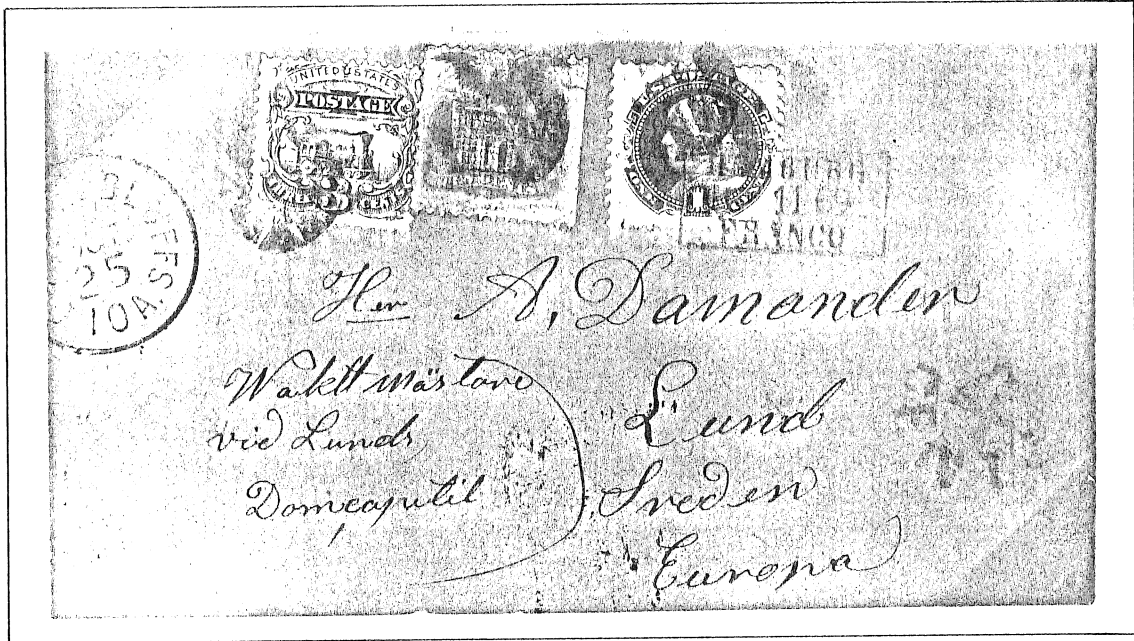 UNITED STATES
POSTAGE
THREE 3 CENTS
1
BURG
11 69
FRANCO
25
IOA.
Her A. Damanden
Wakttmästare
vid Lunds
Domcapitil
Lund
Sveden
Europa